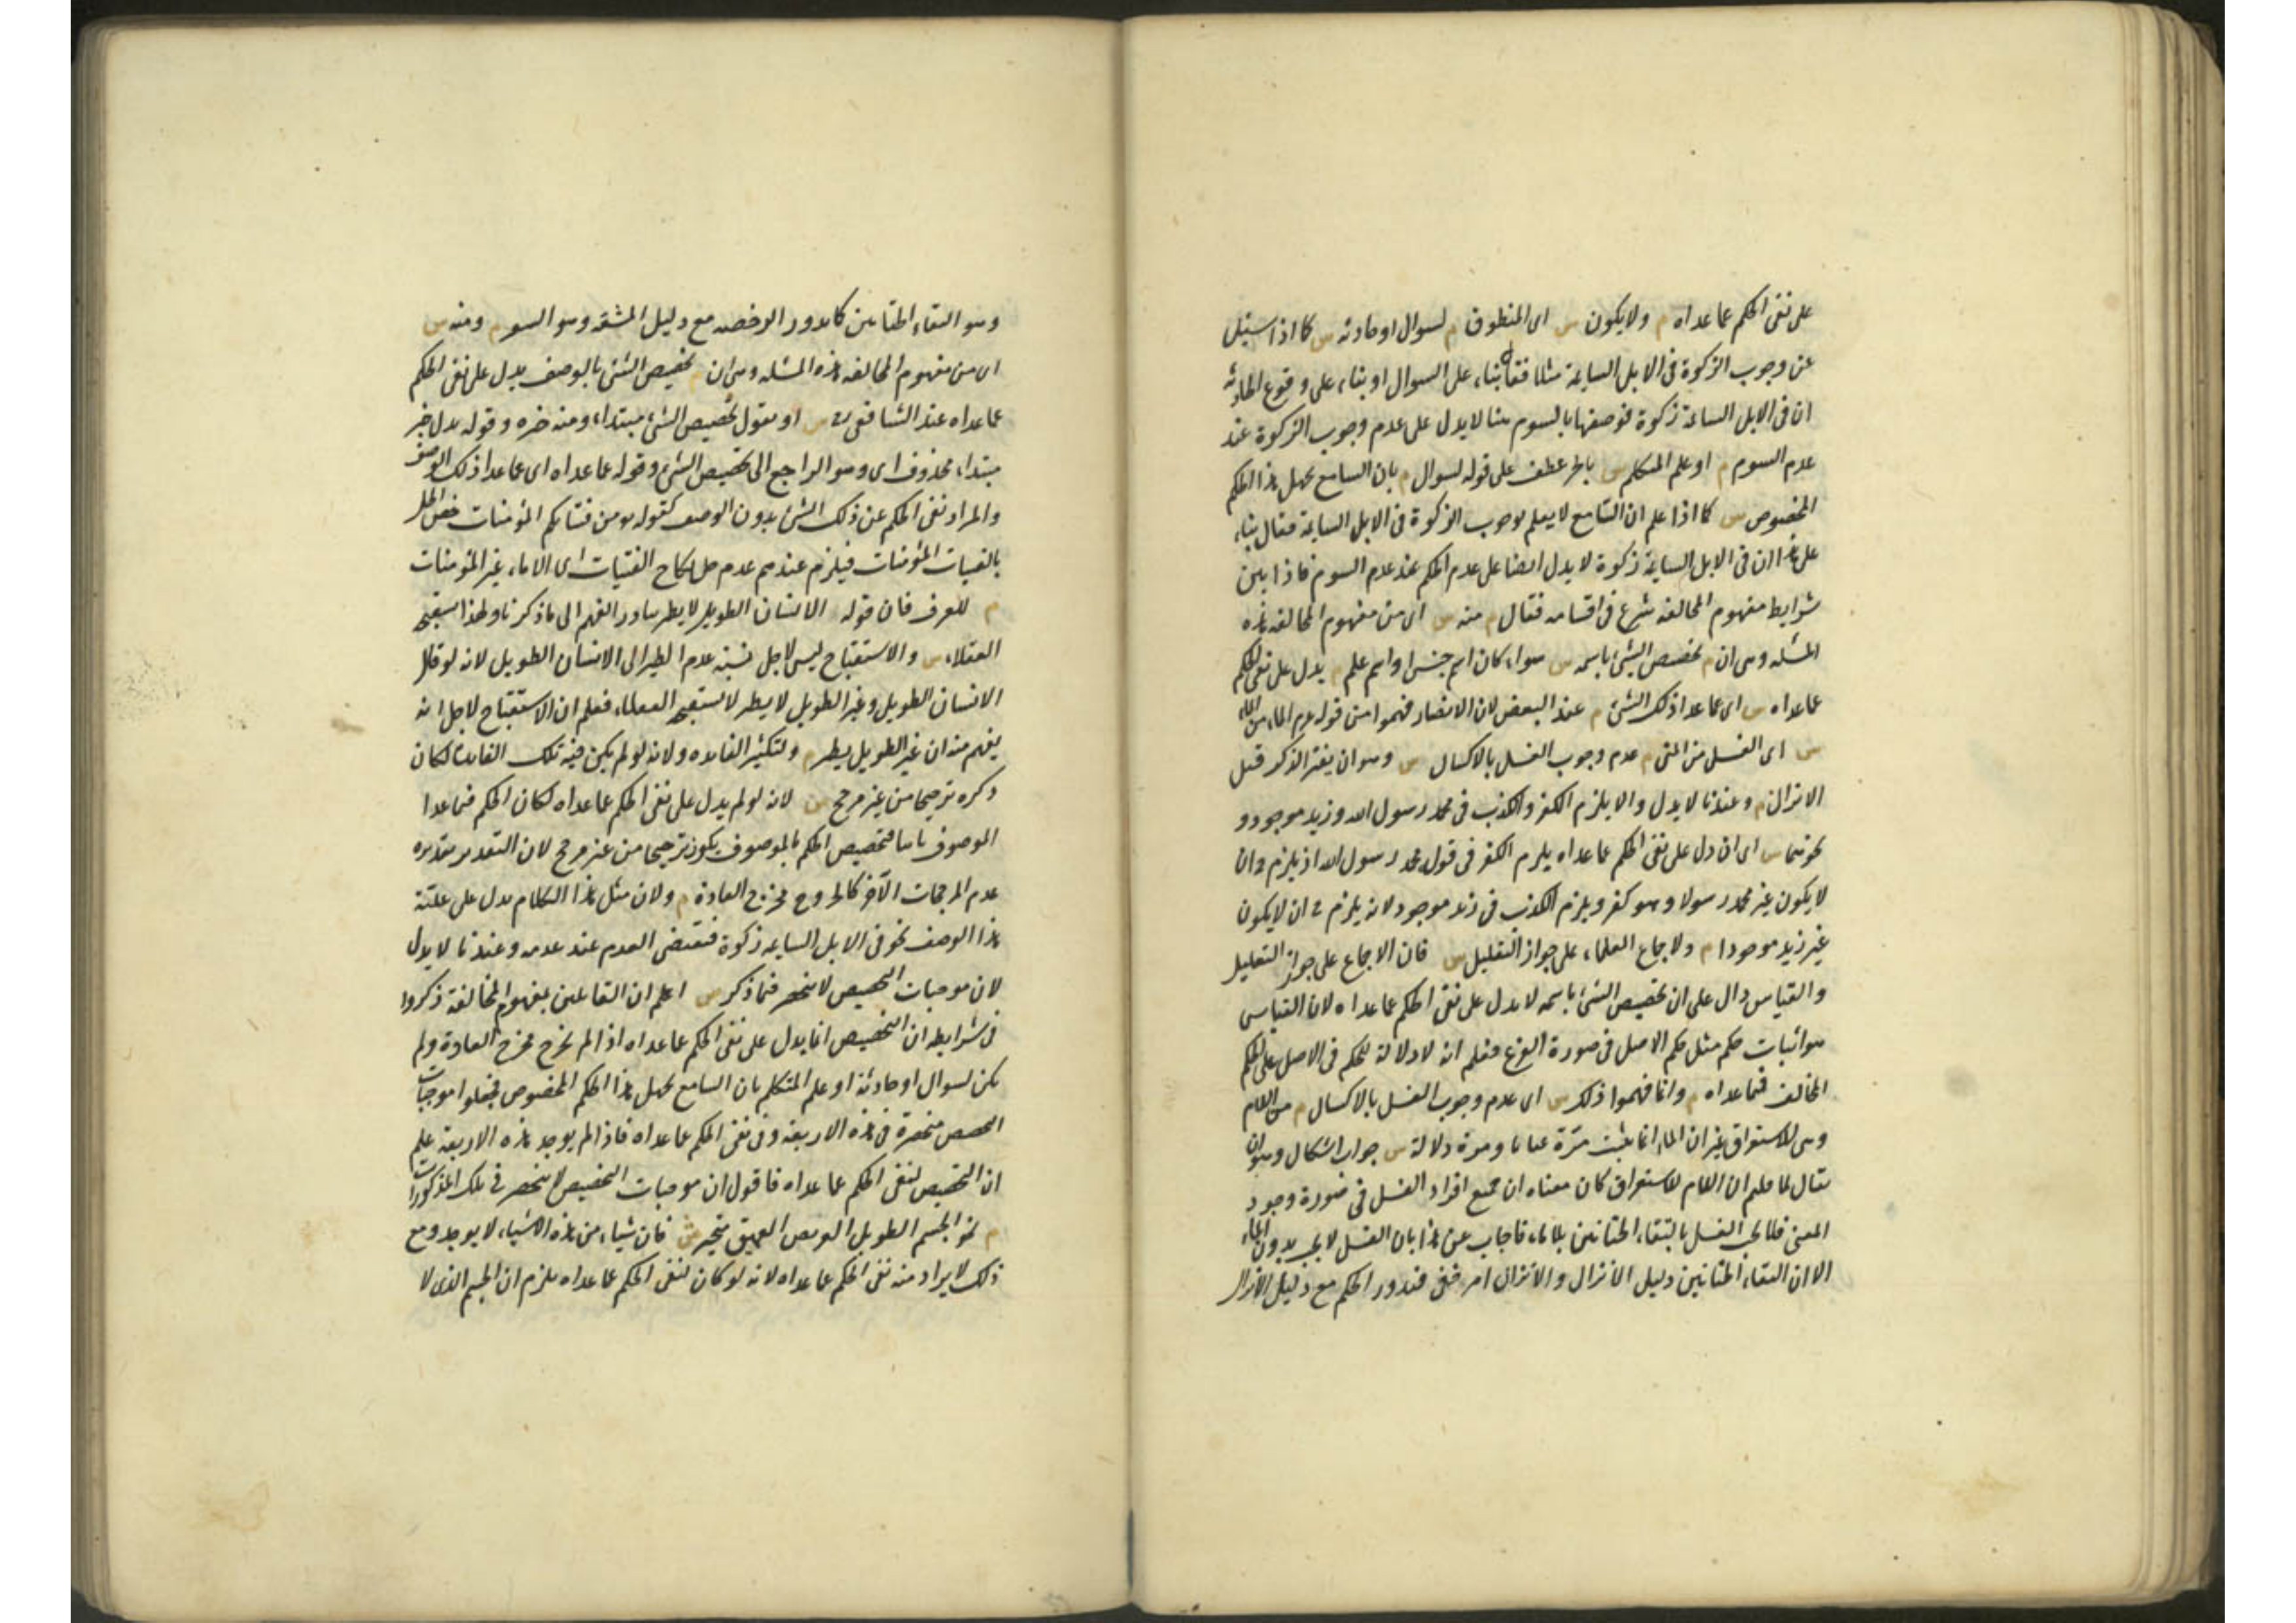 على نفى الحكم عما عداه م ولا يكون س اى المنطوق م لسوال او حادثه س كما اذا سئل
عن وجوب الزكوة فى الابل السايمة مثلا فقال بناء على السوال او بناء على وقوع الحادثه
ان فى الابل السائمة زكوة فوصفها بالسوم هنا لا يدل على عدم وجوب الزكوة عند
عدم السوم م او علم المتكلم س بالجر عطف على قوله لسوال م بان السامع يجهل هذا الحكم
المخصوص س كما اذا علم ان السامع لا يعلم بوجوب الزكوة فى الابل السايمة فقال بناء
على هذا ان فى الابل السايمة زكوة لا يدل ايضا على عدم الحكم عند عدم السوم فاذا بين
شرايط مفهوم المخالفه شرع فى اقسامه فقال م منه س اى من مفهوم المخالفه هذه
المسئله وهى ان م تخصيص الشئ باسمه س سواء كان اسم جنس او اسم علم م يدل على نفى الحكم
عما عداه س اى عما عدا ذلك الشئ م عند البعض لان الانصار فهموا من قوله عم الماء من الماء
س اى الغسل من المنى م عدم وجوب الغسل بالاكسال س وهو ان يفتر الذكر قبل
الانزال م وعندنا لا يدل والا يلزم الكفر والكذب فى محمد رسول الله وزيد موجود و
نحوهما س اى ان دل على نفى الحكم عما عداه يلزم الكفر فى قول محمد رسول الله اذ يلزم ان
لا يكون غير محمد رسولا وهو كفر ويلزم الكذب فى زيد موجود لانه يلزم ح ان لا يكون
غير زيد موجودا م ولاجماع العلماء على جواز التعليل س فان الاجماع على جواز التعليل
والقياس دال على ان تخصيص الشئ باسمه لا يدل على نفى الحكم عما عداه لان القياس
هو اثبات حكم مثل حكم الاصل فى صورة الفرع فعلم انه لا دلالة للحكم فى الاصل على الحكم
المخالف فيما عداه م وانما فهموا ذلك س اى عدم وجوب الغسل بالاكسال م من اللام
وهى للاستغراق غير ان الماء انما يثبت مرّة عيانا ومرة دلالة س جواب اشكال وهو ان
يقال لما قلتم ان اللام للاستغراق كان معناه ان جميع افراد الغسل فى صورة وجود
المنى فلا يجب الغسل بالتقاء الختانين بلا ماء فاجاب عن هذا بان الغسل لا يجب بدون الماء
الا ان التقاء الختانين دليل الانزال والانزال امر خفى فيدور الحكم مع دليل الانزال
وهو التقاء الختانين كما يدور الرخصه مع دليل المشقه وهو السفر م ومنه س
اى من مفهوم المخالفه هذه المسئله وهى ان م تخصيص الشئ بالوصف يدل على نفى الحكم
عما عداه عند الشافعى رح س او نقول تخصيص الشئ مبتداء ومنه خبره وقوله يدل خبر
مبتداء محذوف اى وهو الراجع الى تخصيص الشئ وقوله عما عداه اى عما عدا ذلك الوصف
والمراد نفى الحكم عن ذلك الشئ بدون الوصف كقوله تع من فتياتكم المؤمنات خص الحل
بالفتيات المؤمنات فيلزم عندهم عدم حل نكاح الفتيات اى الاماء غير المؤمنات
م للعرف فان قوله الانسان الطويل لا يطير يتبادر الفهم الى ما ذكرنا ولهذا يستقبحه
العقلاء س والاستقباح ليس لاجل نسبة عدم الطير الى الانسان الطويل لانه لو قال
الانسان الطويل وغير الطويل لا يطير لا يستقبحه العقلاء فعلم ان الاستقباح لاجل انه
يفهم منه ان غير الطويل يطير م ولتكثير الفايده ولانه لو لم يكن فيه تلك الفايدة لكان
ذكره ترجيحا من غير مرجح س لانه لو لم يدل على نفى الحكم عما عداه لكان الحكم فيما عدا
الموصوف ثابتا فتخصيص الحكم بالموصوف يكون ترجيحا من غير مرجح لان التقدير تقدير
عدم المرجحات الآخر كالخروج مخرج العادة م ولان مثل هذا الكلام يدل على عليّة
هذا الوصف نحو فى الابل السايمه زكوة فيقتضى العدم عند عدمه وعندنا لا يدل
لان موجبات التخصيص لا تنحصر فيما ذكر س اعلم ان القائلين بمفهوم المخالفة ذكروا
فى شرايطه ان التخصيص انما يدل على نفى الحكم عما عداه اذا لم يخرج مخرج العادة ولم
يكن لسوال او حادثة او علم المتكلم بان السامع يجهل هذا الحكم المخصوص فجعلوا موجبات
التخصيص منحصرة فى هذه الاربعة وفى نفى الحكم عما عداه فاذا لم يوجد هذه الاربعة علم
ان التخصيص لنفى الحكم عما عداه فاقول ان موجبات التخصيص لا تنحصر فى تلك المذكورات
م نحو الجسم الطويل العريض العميق متحيز ش فان شيئا من هذه الاشياء لا يوجد ومع
ذلك لا يراد منه نفى الحكم عما عداه لانه لو كان لنفى الحكم عما عداه يلزم ان الجسم الذى لا